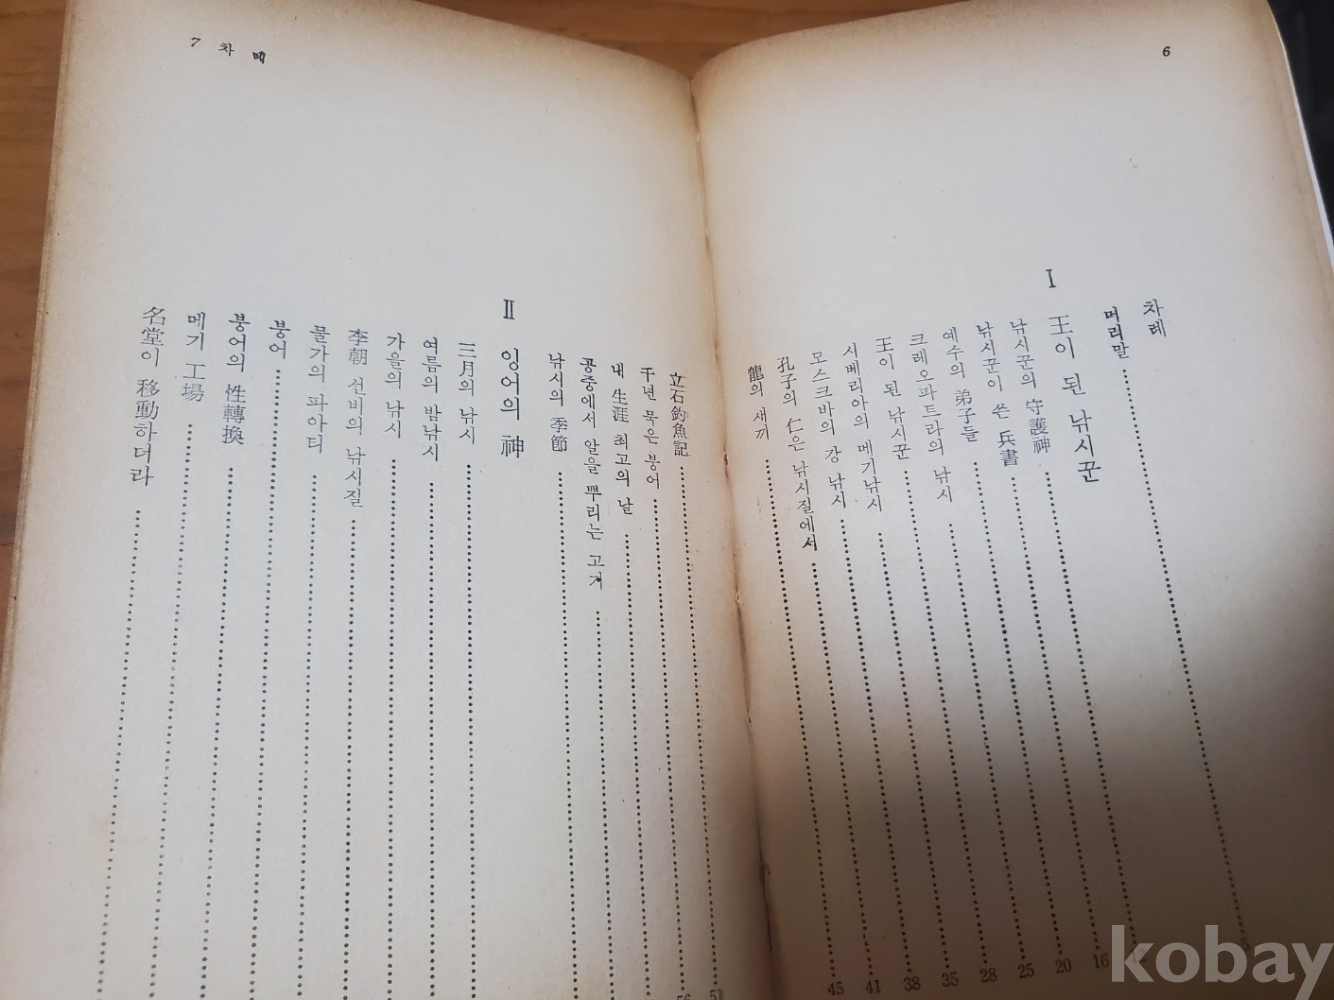 6
차례
머리말
I 王이 된 낚시꾼
낚시꾼의 守護神
낚시꾼이 쓴 兵書 16
예수의 弟子들 20
크레오파트라의 낚시 25
王이 된 낚시꾼 28
시베리아의 메기낚시 35
모스크바의 강 낚시 38
孔子의 仁은 낚시질에서 41
龍의 새끼 45
7 차 례
立石釣魚記 51
千년 묵은 붕어 56
내 生涯 최고의 날
공중에서 알을 뿌리는 고기
낚시의 季節
II 잉어의 神
三月의 낚시
여름의 밤낚시
가을의 낚시
李朝 선비의 낚시질
물가의 파아티
붕어
붕어의 性轉換
메기 工場
名堂이 移動하더라
kobay